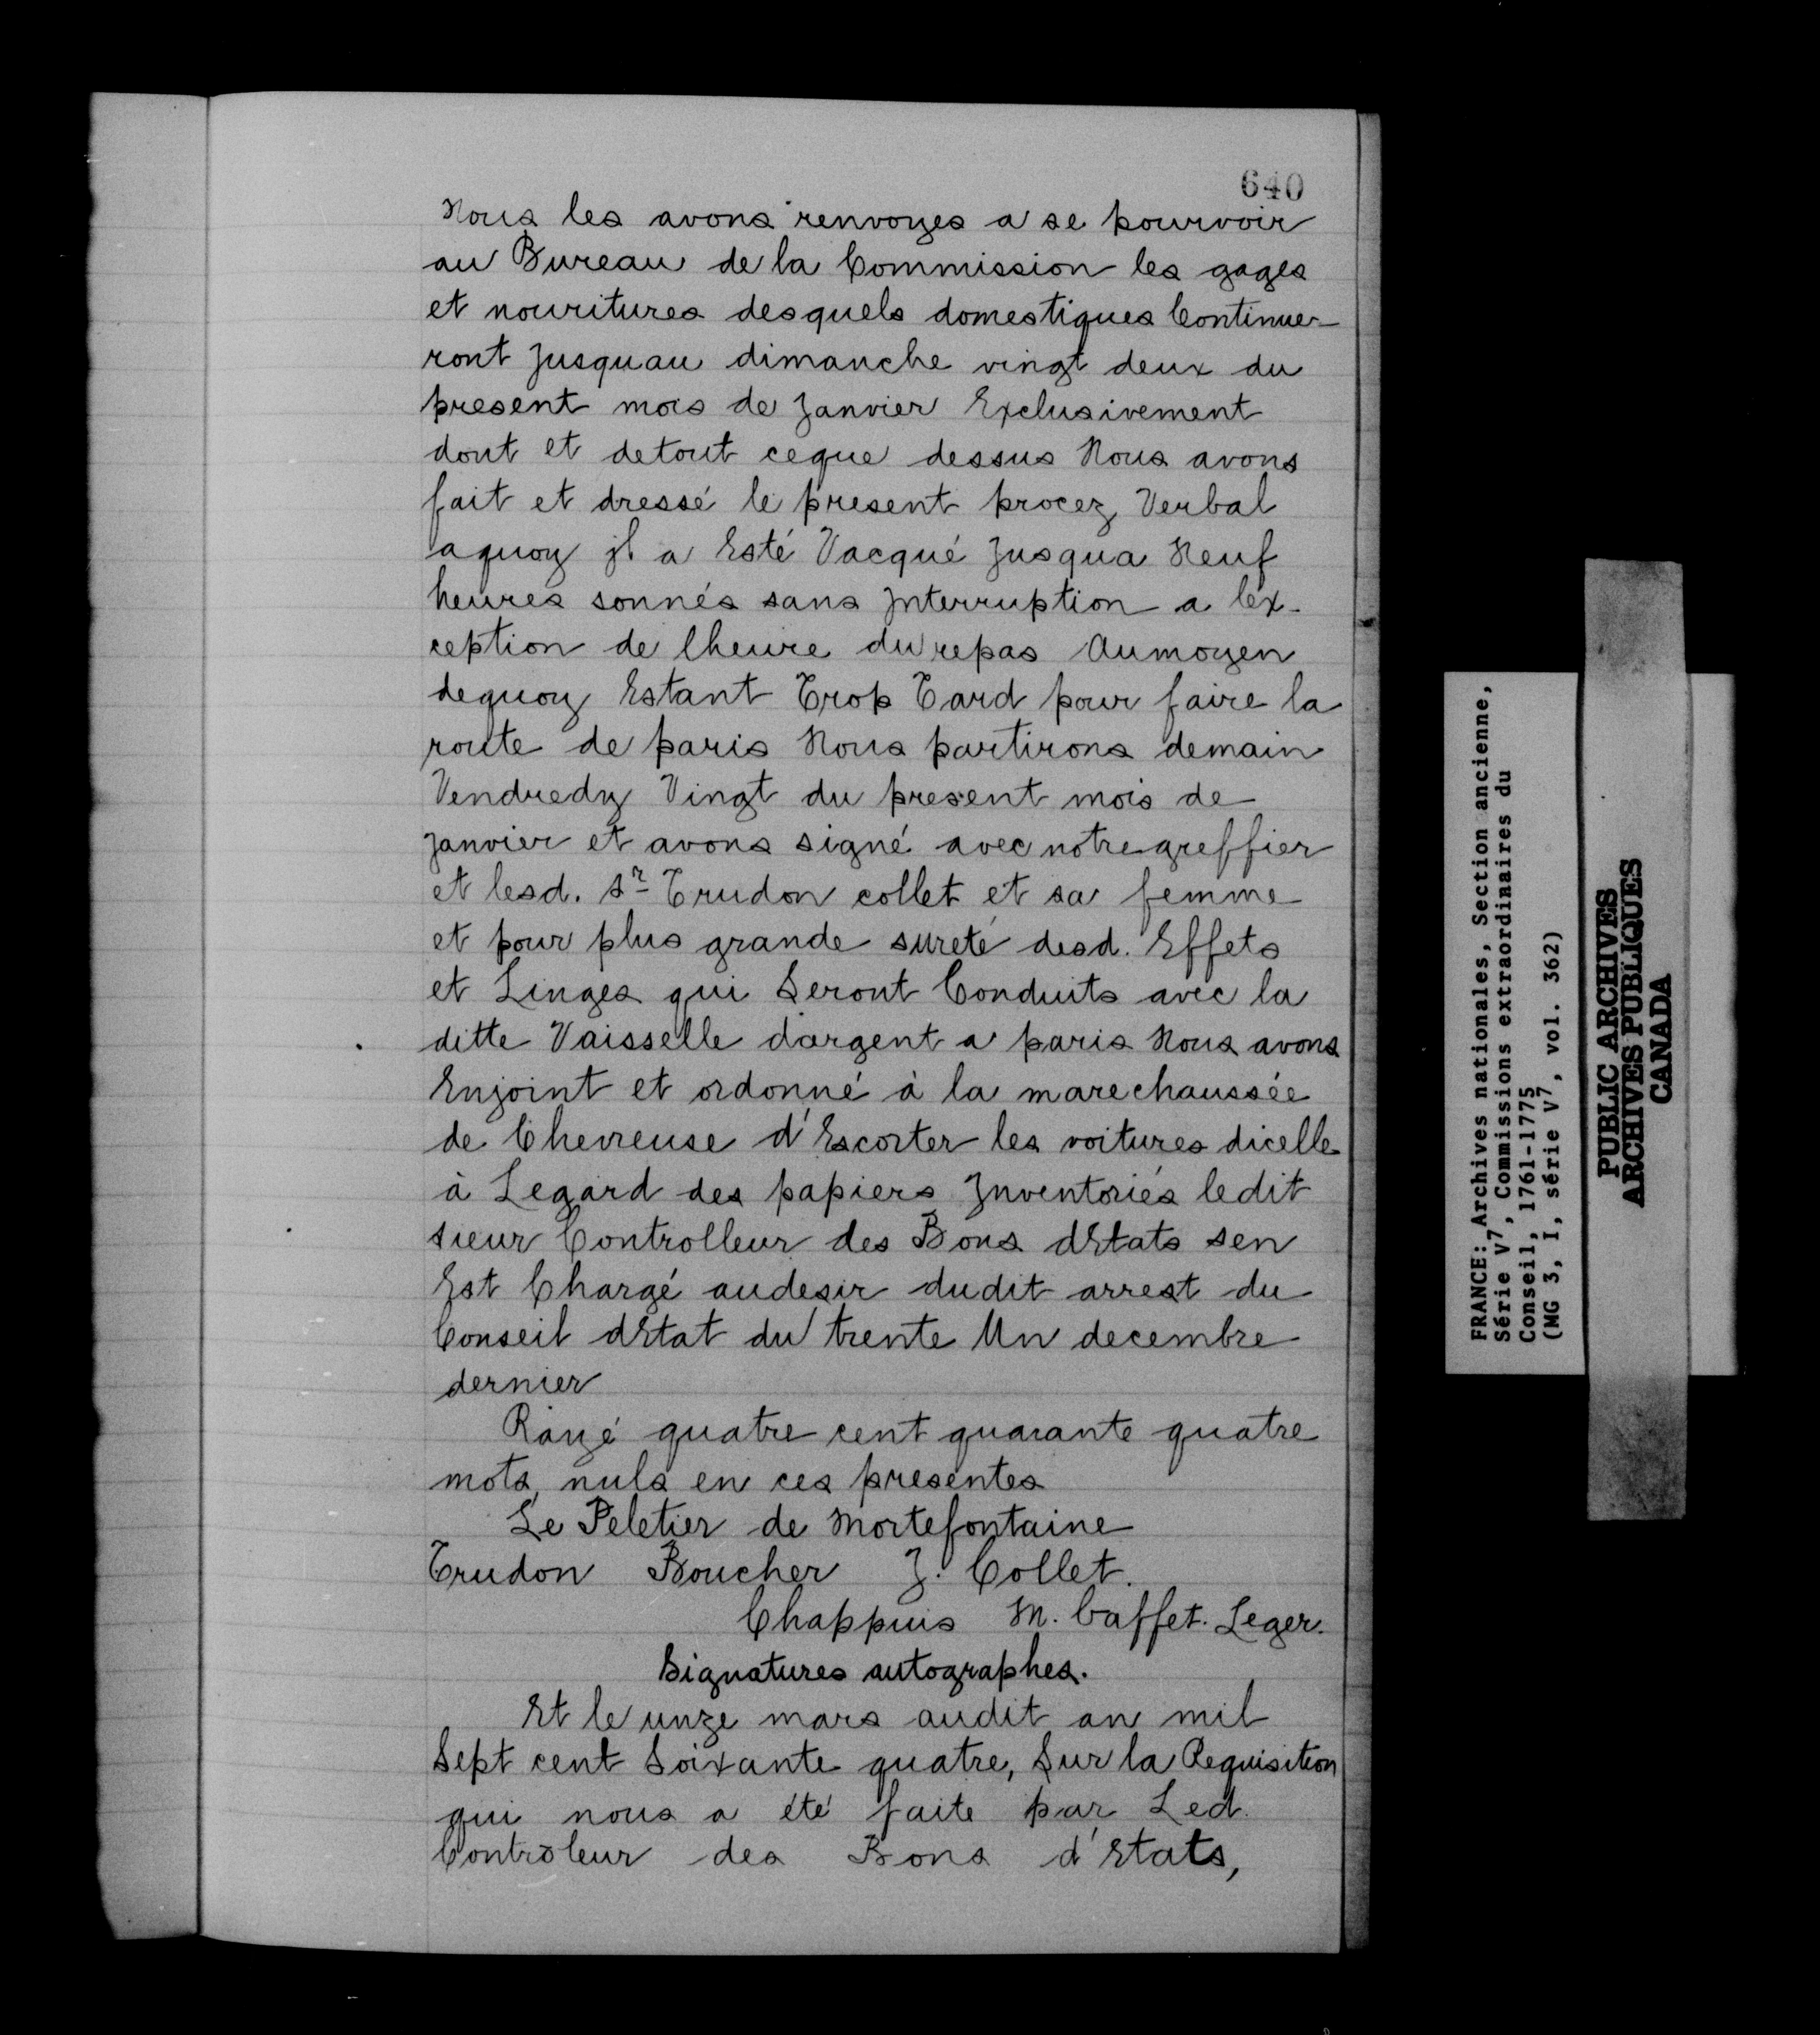 640
Nous les avons renvoyes a se pourvoir
au Bureau de la Commission les gages
et nouritures desquels domestiques Continue-
ront Jusquau dimanche vingt deux du
present mois de Janvier Exclusivement
dont et detout ceque dessus Nous avons
fait et dressé le present procez Verbal
aquoy jl a Esté Vacqué Jusqua Neuf
heures sonnés sans Jnterruption a léx-
ception de lheure du repas Aumoyen
dequoy Estant Trop Tard pour faire la
route de paris Nous partirons demain
Vendredy Vingt du present mois de
Janvier et avons signé avec notre greffier
et lesd. Sr Trudon collet et sa femme
et pour plus grande sureté desd. Effets
et Linges qui Seront Conduits avec la
ditte Vaisselle dargent a paris Nous avons
Enjoint et ordonné à la marechaussée
de Chevreuse d'Escorter les voitures dicelle
à Legard des papiers Jnventoriés ledit
sieur Controlleur des Bons dEtats sen
Est Chargé audesir dudit arrest du
Conseil dEtat du trente Un decembre
dernier
Rayé quatre cent quarante quatre
mots, nuls en ces presentes
Le Peletier de Mortefontaine
Trudon Boucher J. Collet.
Chappuis M. Caffet. Leger.
Signatures autographes.
Et le unze mars audit an mil
Sept cent Soixante quatre, Sur la Requisition
qui nous a été faite par Led.
Contrôleur des Bons d'Etats,
FRANCE: Archives nationales, Section ancienne,
Série V7, Commissions extraordinaires du
Conseil, 1761-1775
(MG 3, I, série V7, vol. 362)
PUBLIC ARCHIVES
ARCHIVES PUBLIQUES
CANADA